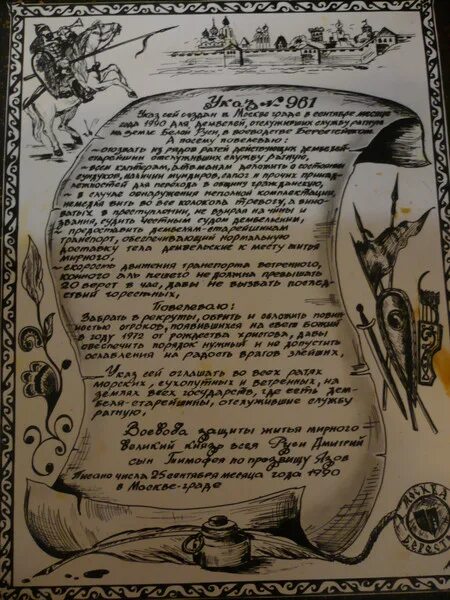 Указ № 961
Указ сей создан в Москве граде в сентябре месяце
года 1990 для дембелей, отслуживших службу ратну
на земле Белой Руси, в воеводстве Берестейском
А посему повелеваю:
– отозвать из рядов ратей действующих дембелей-
старейшин отслуживших службу ратную,
– всем каптерам, атаманам доложить о состоянии
сундуков, наличии мундиров, сапог и прочих принад-
лежностей для перехода в общину гражданскую,
– в случае обнаружения неполной комплектации,
немедля бить во все колокола тревогу, а вино-
ватых в преступлении, не взирая на чины и
звания, судить честным судом дембельским,
– предоставить дембелям-старейшинам
транспорт, обеспечивающий нормальную
доставку тела дембельского к месту житья
мирного,
– скорость движения транспорта ветренного,
конного али пешего не должна превышать
20 верст в час, дабы не вызвать послед-
ствий горестных,
Повелеваю:
Забрать в рекруты, обрить и обложить повин-
ностью отроков, появившихся на свет Божий
в году 1972 от рождества христова, дабы
обеспечить порядок нужный и не допустить
ославления на радость врагов злейших,
Указ сей огласить во всех ратях
морских, сухопутных и ветренных, на
землях всех государств, где есть дем-
беля-старейшины, отслужившие службу
ратную.
Воевода защиты житья мирного
Великий князь всея Руси Дмитрий
сын Тимофея по прозвищу Язов
Писано числа 25 сентября месяца года 1990
в Москве-граде
МОСКВА
БЕРЕСТ